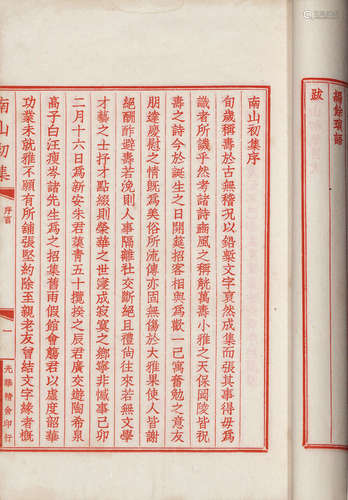 楊餘瑣語
跋
南山初集序
旬歲稱壽於古無稽况以鉛槧文字裒然成集而張其事得毋爲
識者所譏乎然考諸詩豳風之稱觥萬壽小雅之天保岡陵皆祝
壽之詩今於誕生之日開筵招客相與爲歡一己寓奮勉之意友
朋達慶慰之情旣爲美俗所流傳亦固無傷於大雅果使人皆謝
絕酬酢避壽若浼則人事隔離社交斷絕且禮尚往來若無文學
才藝之士抒才點綴則榮華之世淒成寂寞之鄉寧非憾事己卯
二月十六日爲新安朱君藹青五十攬揆之辰君廣交遊陶希泉
高子白汪瘦岑諸先生爲之招集舊雨假館會觴君以虛度韶華
功業未就雅不願有所鋪張堅約除至親老友曾結文字緣者槪
南山初集
序言
一
光華精舍印行